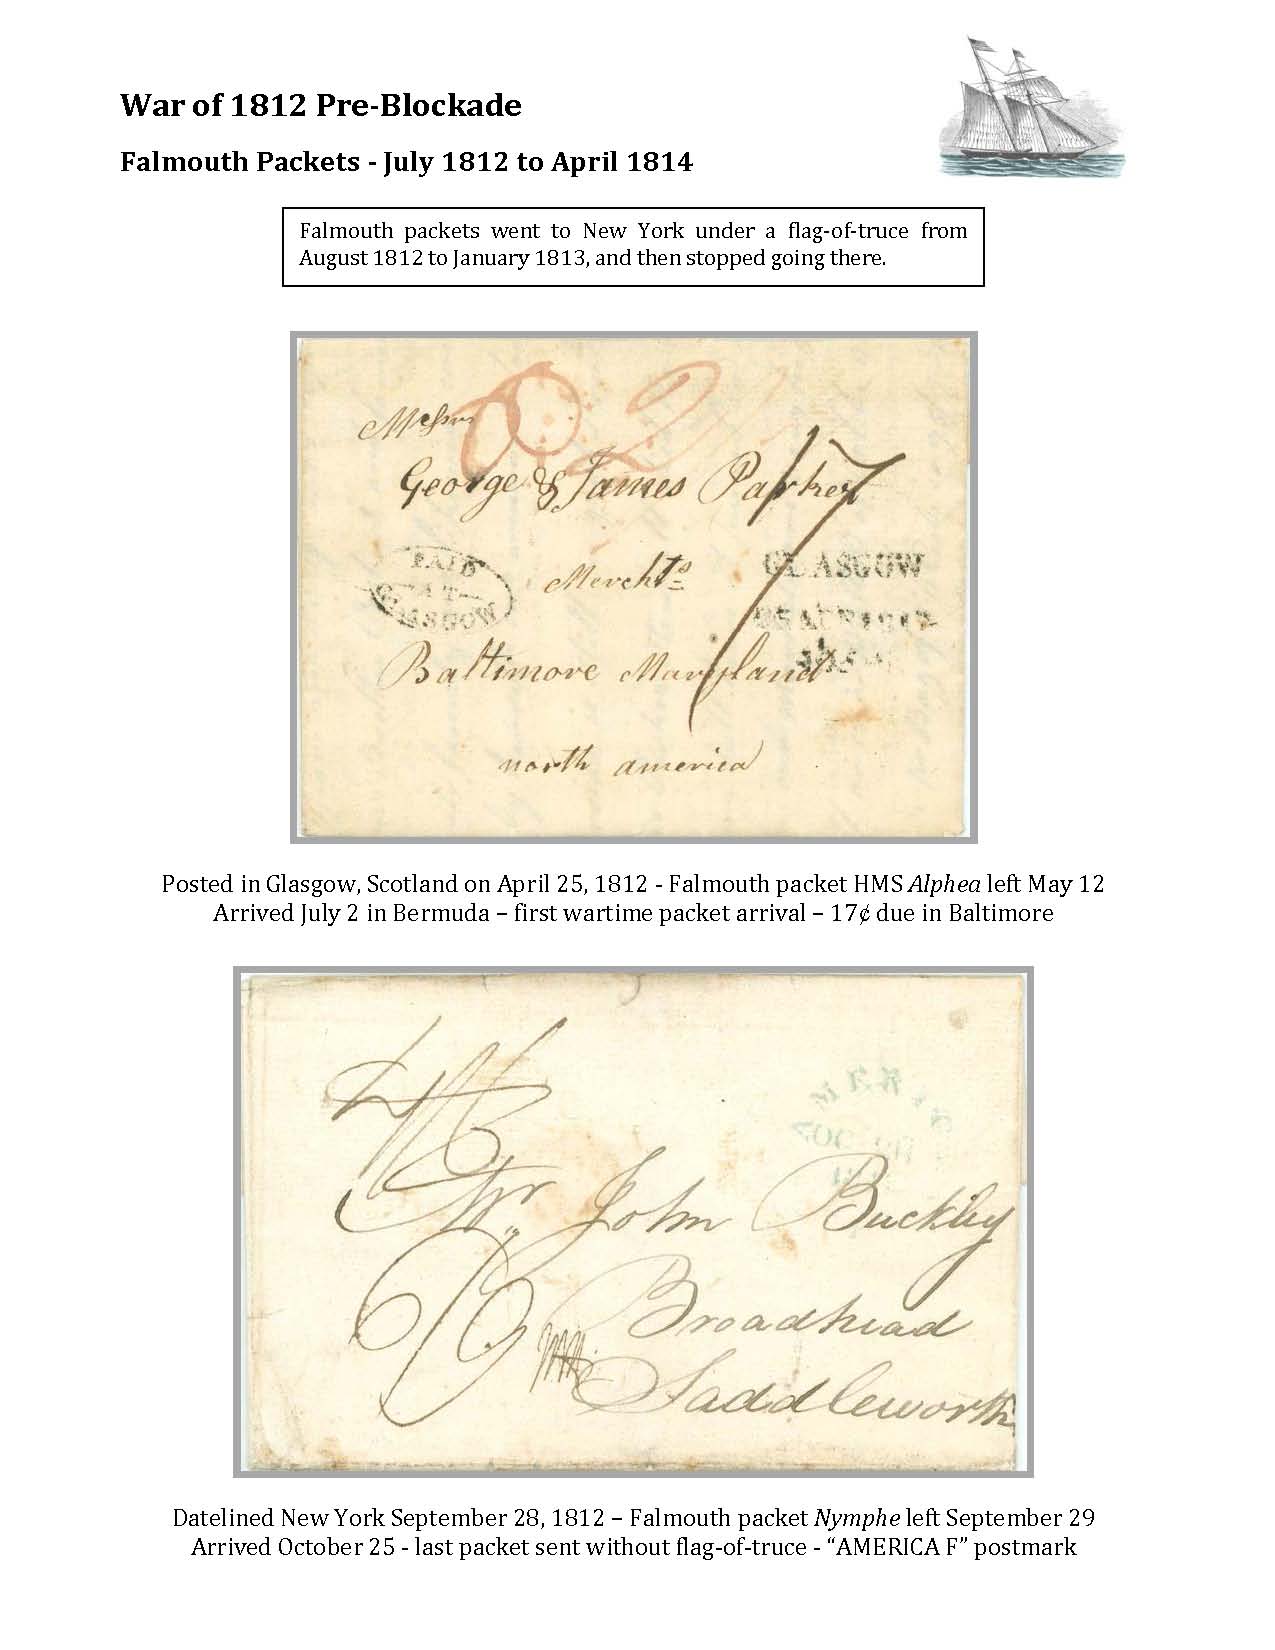 War of 1812 Pre-Blockade
Falmouth Packets - July 1812 to April 1814
Falmouth packets went to New York under a flag-of-truce from
August 1812 to January 1813, and then stopped going there.
Messrs
George & James Parker
Merchts
Baltimore Maryland
north america
17
PAID
AT
GLASGOW
GLASGOW
Posted in Glasgow, Scotland on April 25, 1812 - Falmouth packet HMS Alphea left May 12
Arrived July 2 in Bermuda – first wartime packet arrival – 17¢ due in Baltimore
Mr. John Buckley
Broadhead
Saddleworth
Datelined New York September 28, 1812 – Falmouth packet Nymphe left September 29
Arrived October 25 - last packet sent without flag-of-truce - “AMERICA F” postmark